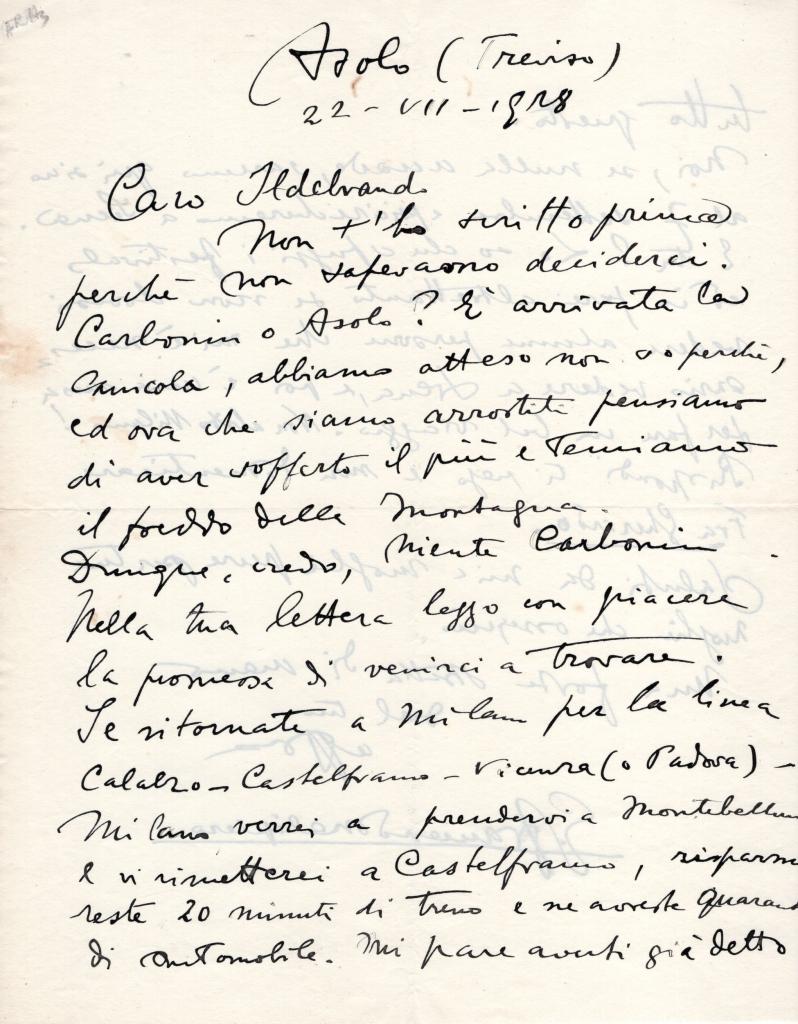 Asolo (Treviso)
22 - VII - 1928
Caro Ildebrando
Non t'ho scritto prima
perchè non sapevamo deciderci.
Carbonin o Asolo? È arrivata la
canicola, abbiamo atteso non so perchè,
ed ora che siamo arrostiti pensiamo
di aver sofferto il più e temiamo
il freddo della montagna.
Dunque, credo, niente Carbonin.
Nella tua lettera leggo con piacere
la promessa di venirci a trovare.
Se ritornate a Milano per la linea
Calalzo - Castelfranco - Vicenza (o Padova) -
Milano verrei a prendervi a Montebellun
e vi rimetterei a Castelfranco, risparmie
reste 20 minuti di treno e ne avreste quaran
di automobile. Mi pare averti già detto